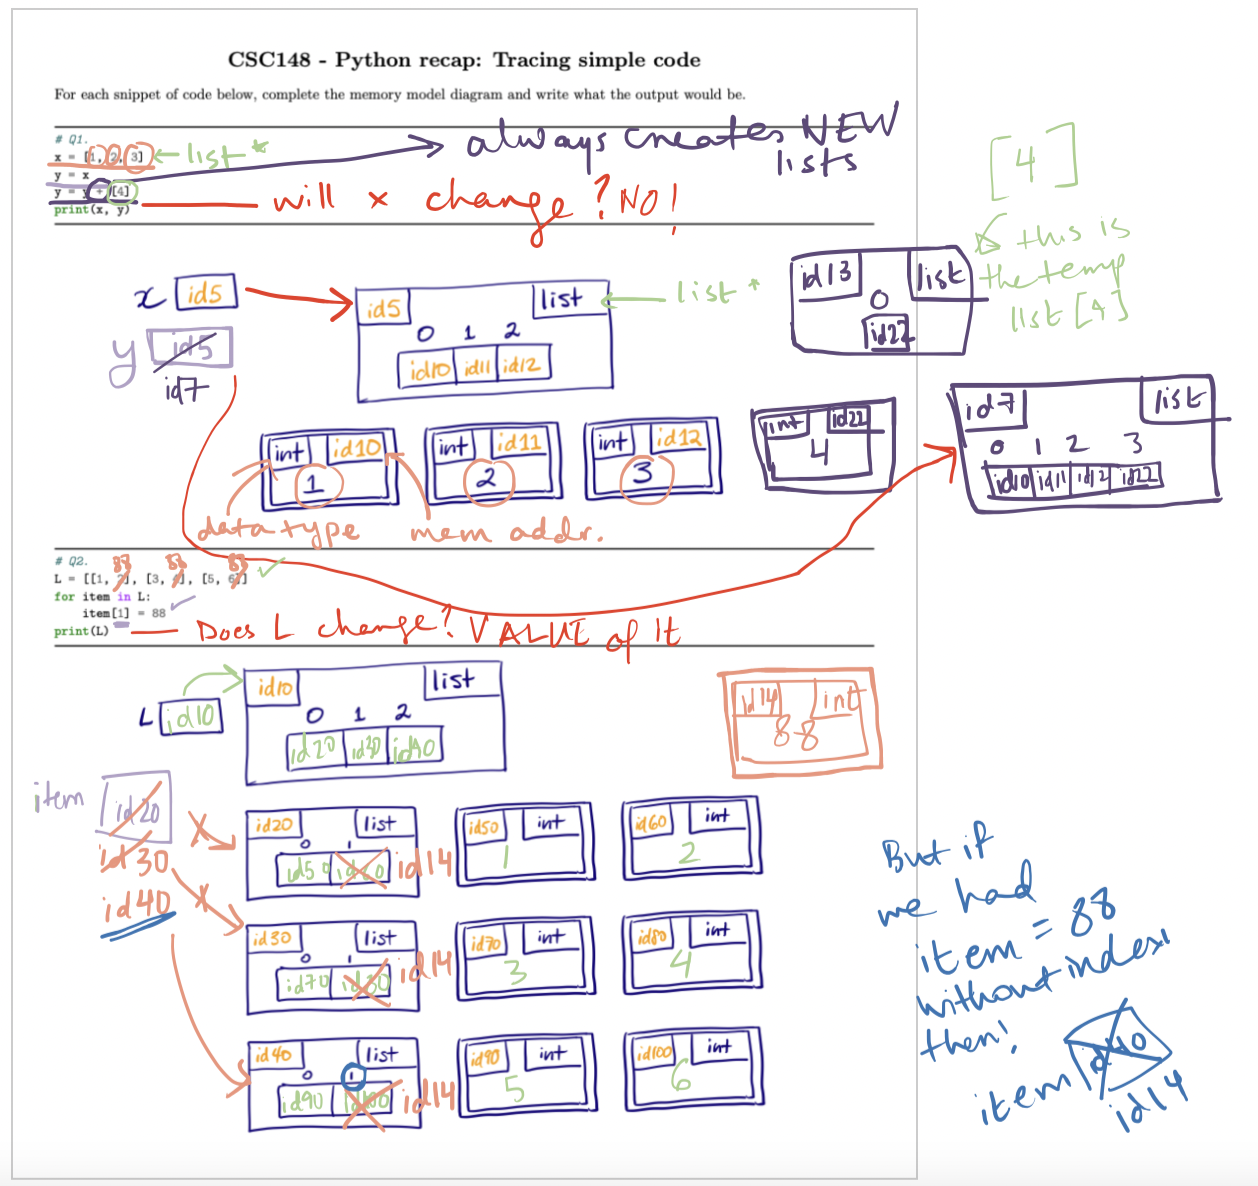 CSC148 - Python recap: Tracing simple code
For each snippet of code below, complete the memory model diagram and write what the output would be.
# Q1.
x = [1, 2, 3] ← list *
y = x
y = y + [4]
print(x, y)
always creates NEW
lists
will x change? NO!
[4]
this is
the temp
list [4]
x id5
y id5
id7
id5 list
0 1 2
id10 id11 id12
list *
id13 list
0
id22
int id10
1
int id11
2
int id12
3
int id22
4
id7 list
0 1 2 3
id10 id11 id12 id22
data type
mem addr.
# Q2.
88 88 88
L = [[1, 2], [3, 4], [5, 6]]
for item in L:
item[1] = 88
print(L)
Does L change? VALUE of it
L id10
id10 list
0 1 2
id20 id30 id40
id14 int
88
item id20
id30
id40
id20 list
0 1
id50 id60 id14
id50 int
1
id60 int
2
id30 list
0 1
id70 id80 id14
id70 int
3
id80 int
4
id40 list
0 1
id90 id100 id14
id90 int
5
id100 int
6
But if
we had
item = 88
without index
then!
item id40
id14